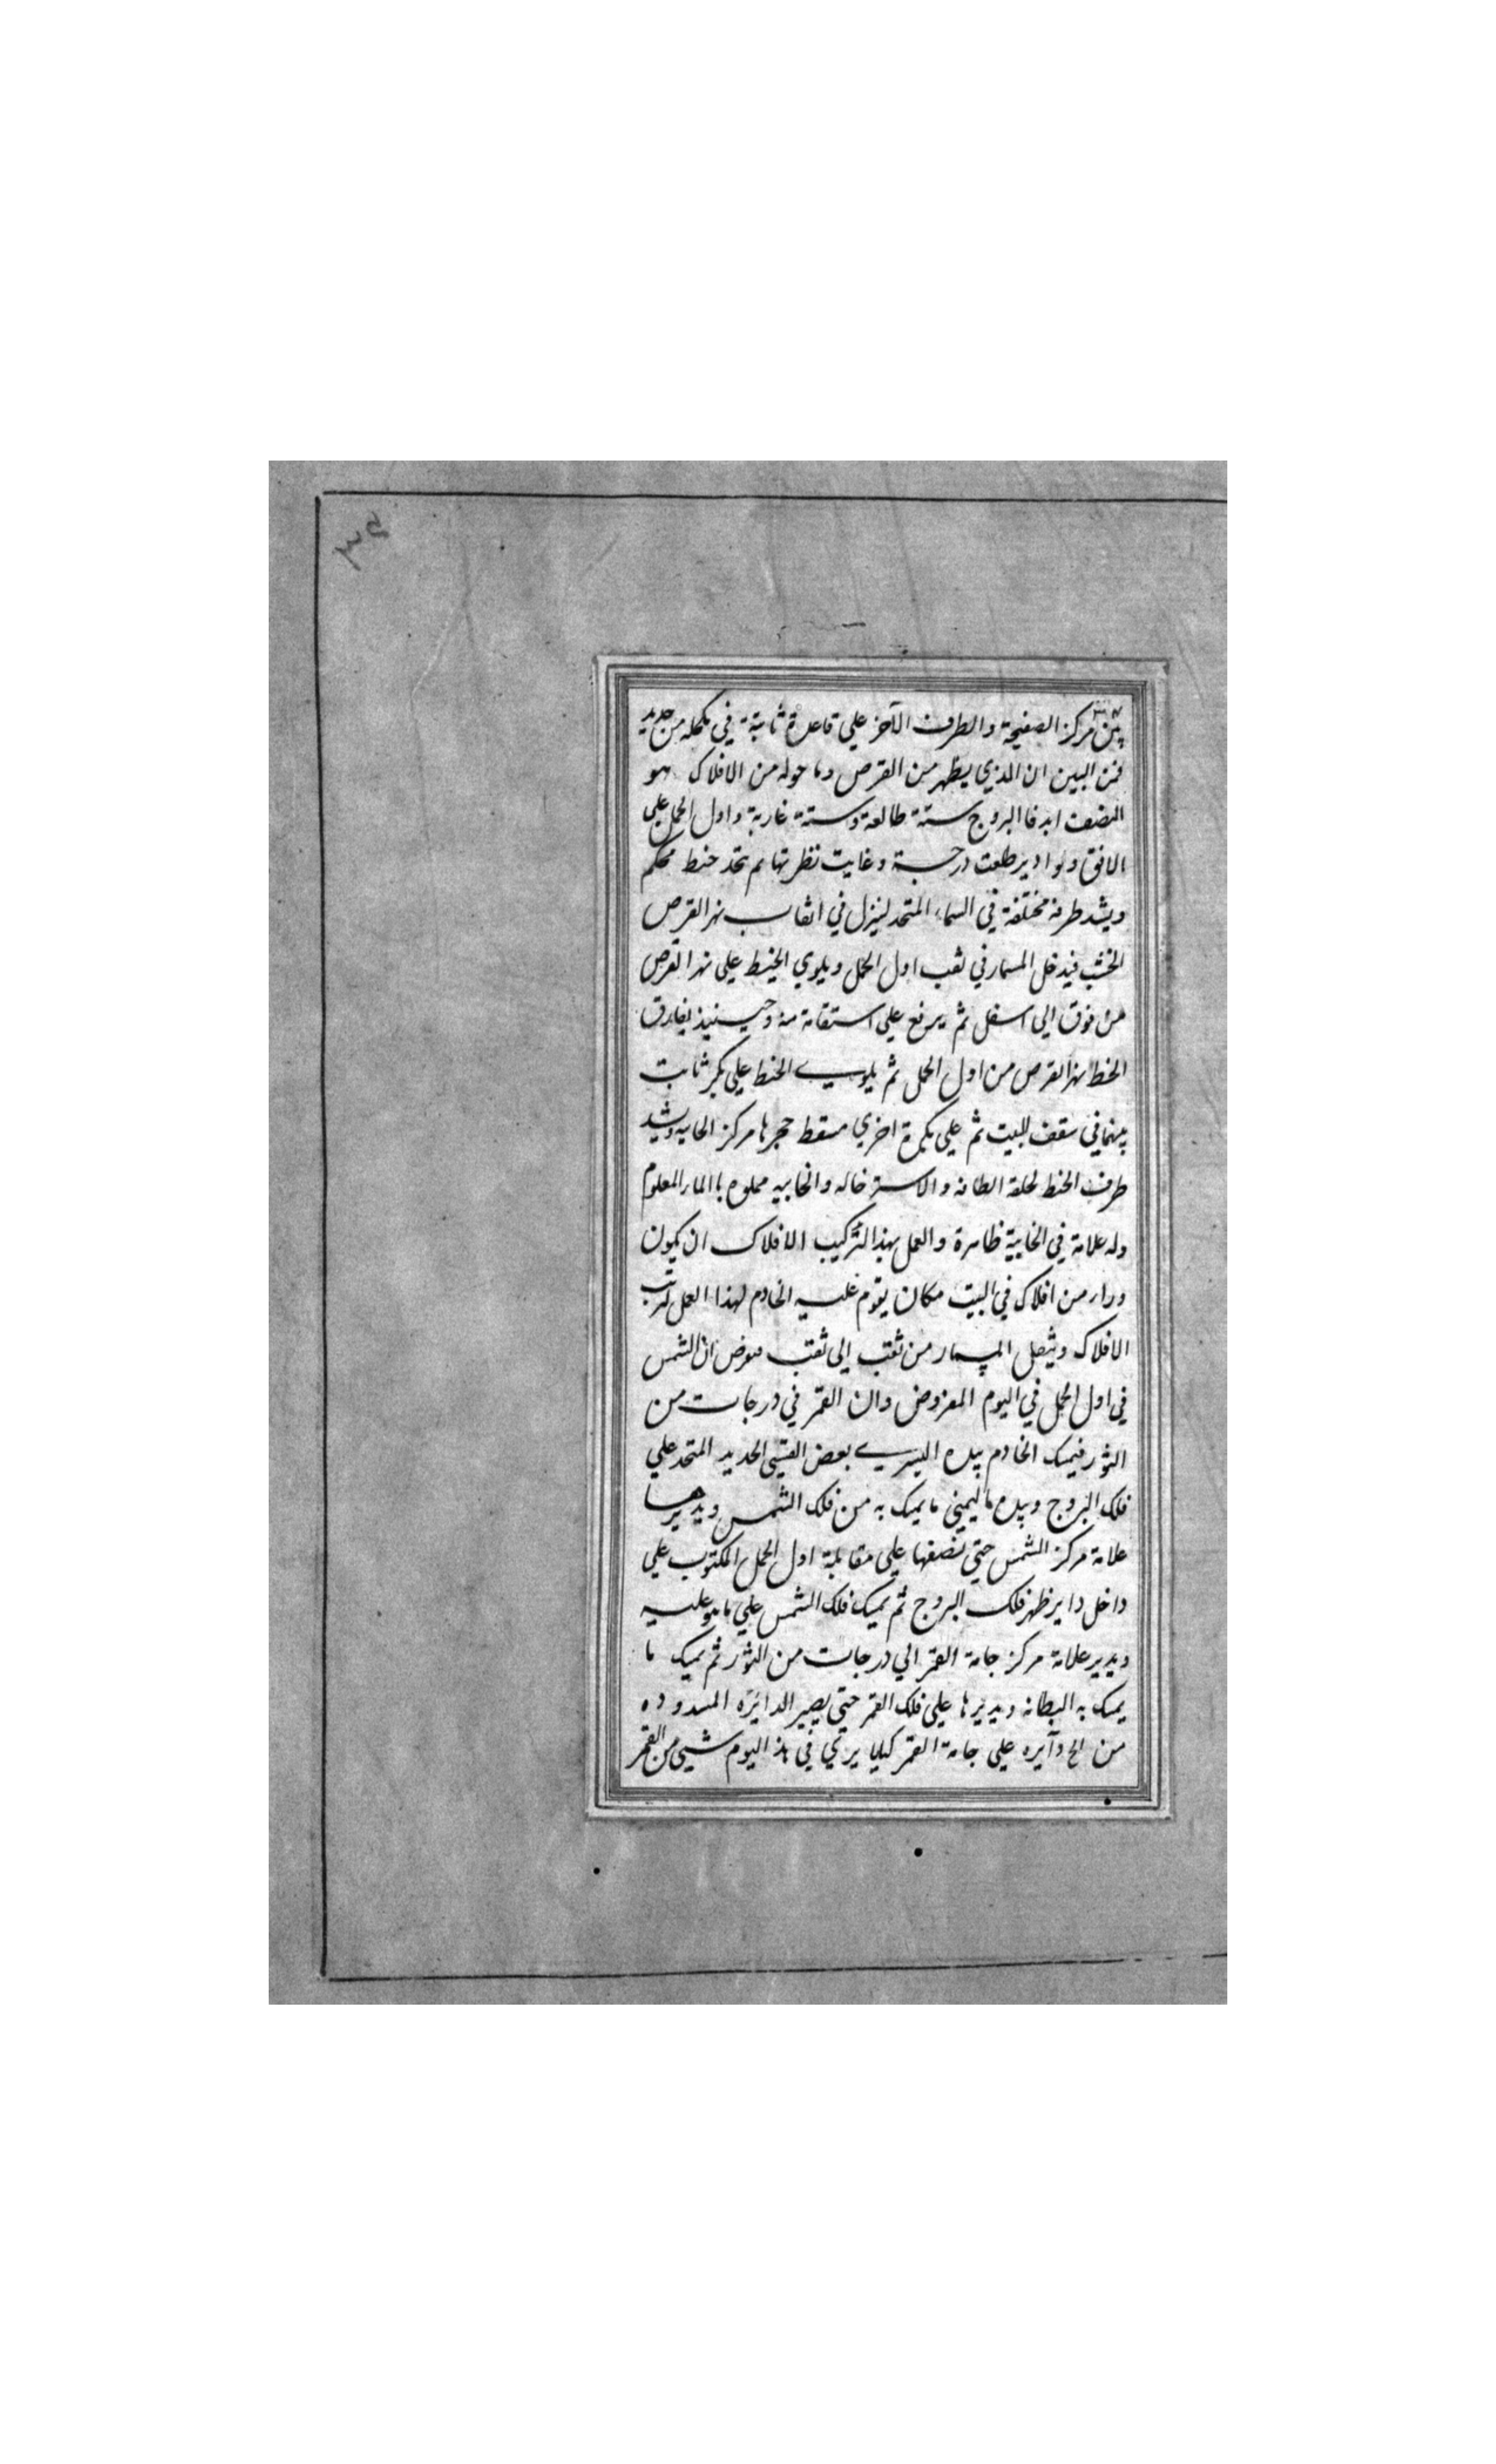 ٣٤
من مركز الصفيحة والطرف الآخر علي قاعدة ثابتة في مكحله من حديد
فمن البين ان الذي يظهر من القرص وما حوله من الافلاك هو
النصف ابدا فالبروج ستة طالعة وستة غاربة واول الحمل علي
الافق ولوا دير طلعت درجة وغابت نظرتها ثم يتخذ خيط محكم
ويشد طرفه مختلفة في السماء المتخذ لينزل في اثقاب نهر القرص
الخشب فيدخل المسمار في ثقب اول الحمل ويلوي الخيط علي نهر القرص
من فوق الي اسفل ثم يرفع علي استقامة منه وحينيذ يفارق
الخيط نهر القرص من اول الحمل ثم يلوي الخيط علي بكر ثابت
بينهما في سقف البيت ثم علي بكرة اخري مسقط حجرها مركز الخابيه ويشد
طرف الخيط لحلقة الطافه والاسترخاله والخابيه مملوه بالماء المعلوم
وله علامة في الخابية ظاهرة والعمل بهذا التركيب الافلاك ان يكون
ورا من افلاك في البيت مكان يقوم عليه الخادم لهذا العمل لترتب
الافلاك وينقل المسمار من ثقب الي ثقب فنفرض ان الشمس
في اول الحمل في اليوم المفروض وان القمر في درجات من
الثور فيمسك الخادم بيده اليسري بعض القسي الحديد المتخذ علي
فلك البروج وبيده اليمني ما يمسك به من فلك الشمس ويديرها
علامة مركز الشمس حتي نصفها علي مقابلة اول الحمل المكتوب علي
داخل دايرظهر فلك البروج ثم يمسك فلك الشمس علي ما هو عليه
ويدير علامة مركز جامة القمر الي درجات من الثور ثم يمسك ما
يمسك به البطانه ويديرها علي فلك القمر حتي يصير الدائره المسدوده
من الح دآيره علي جامة القمر كيلا يري في هذ اليوم شيي من القمر